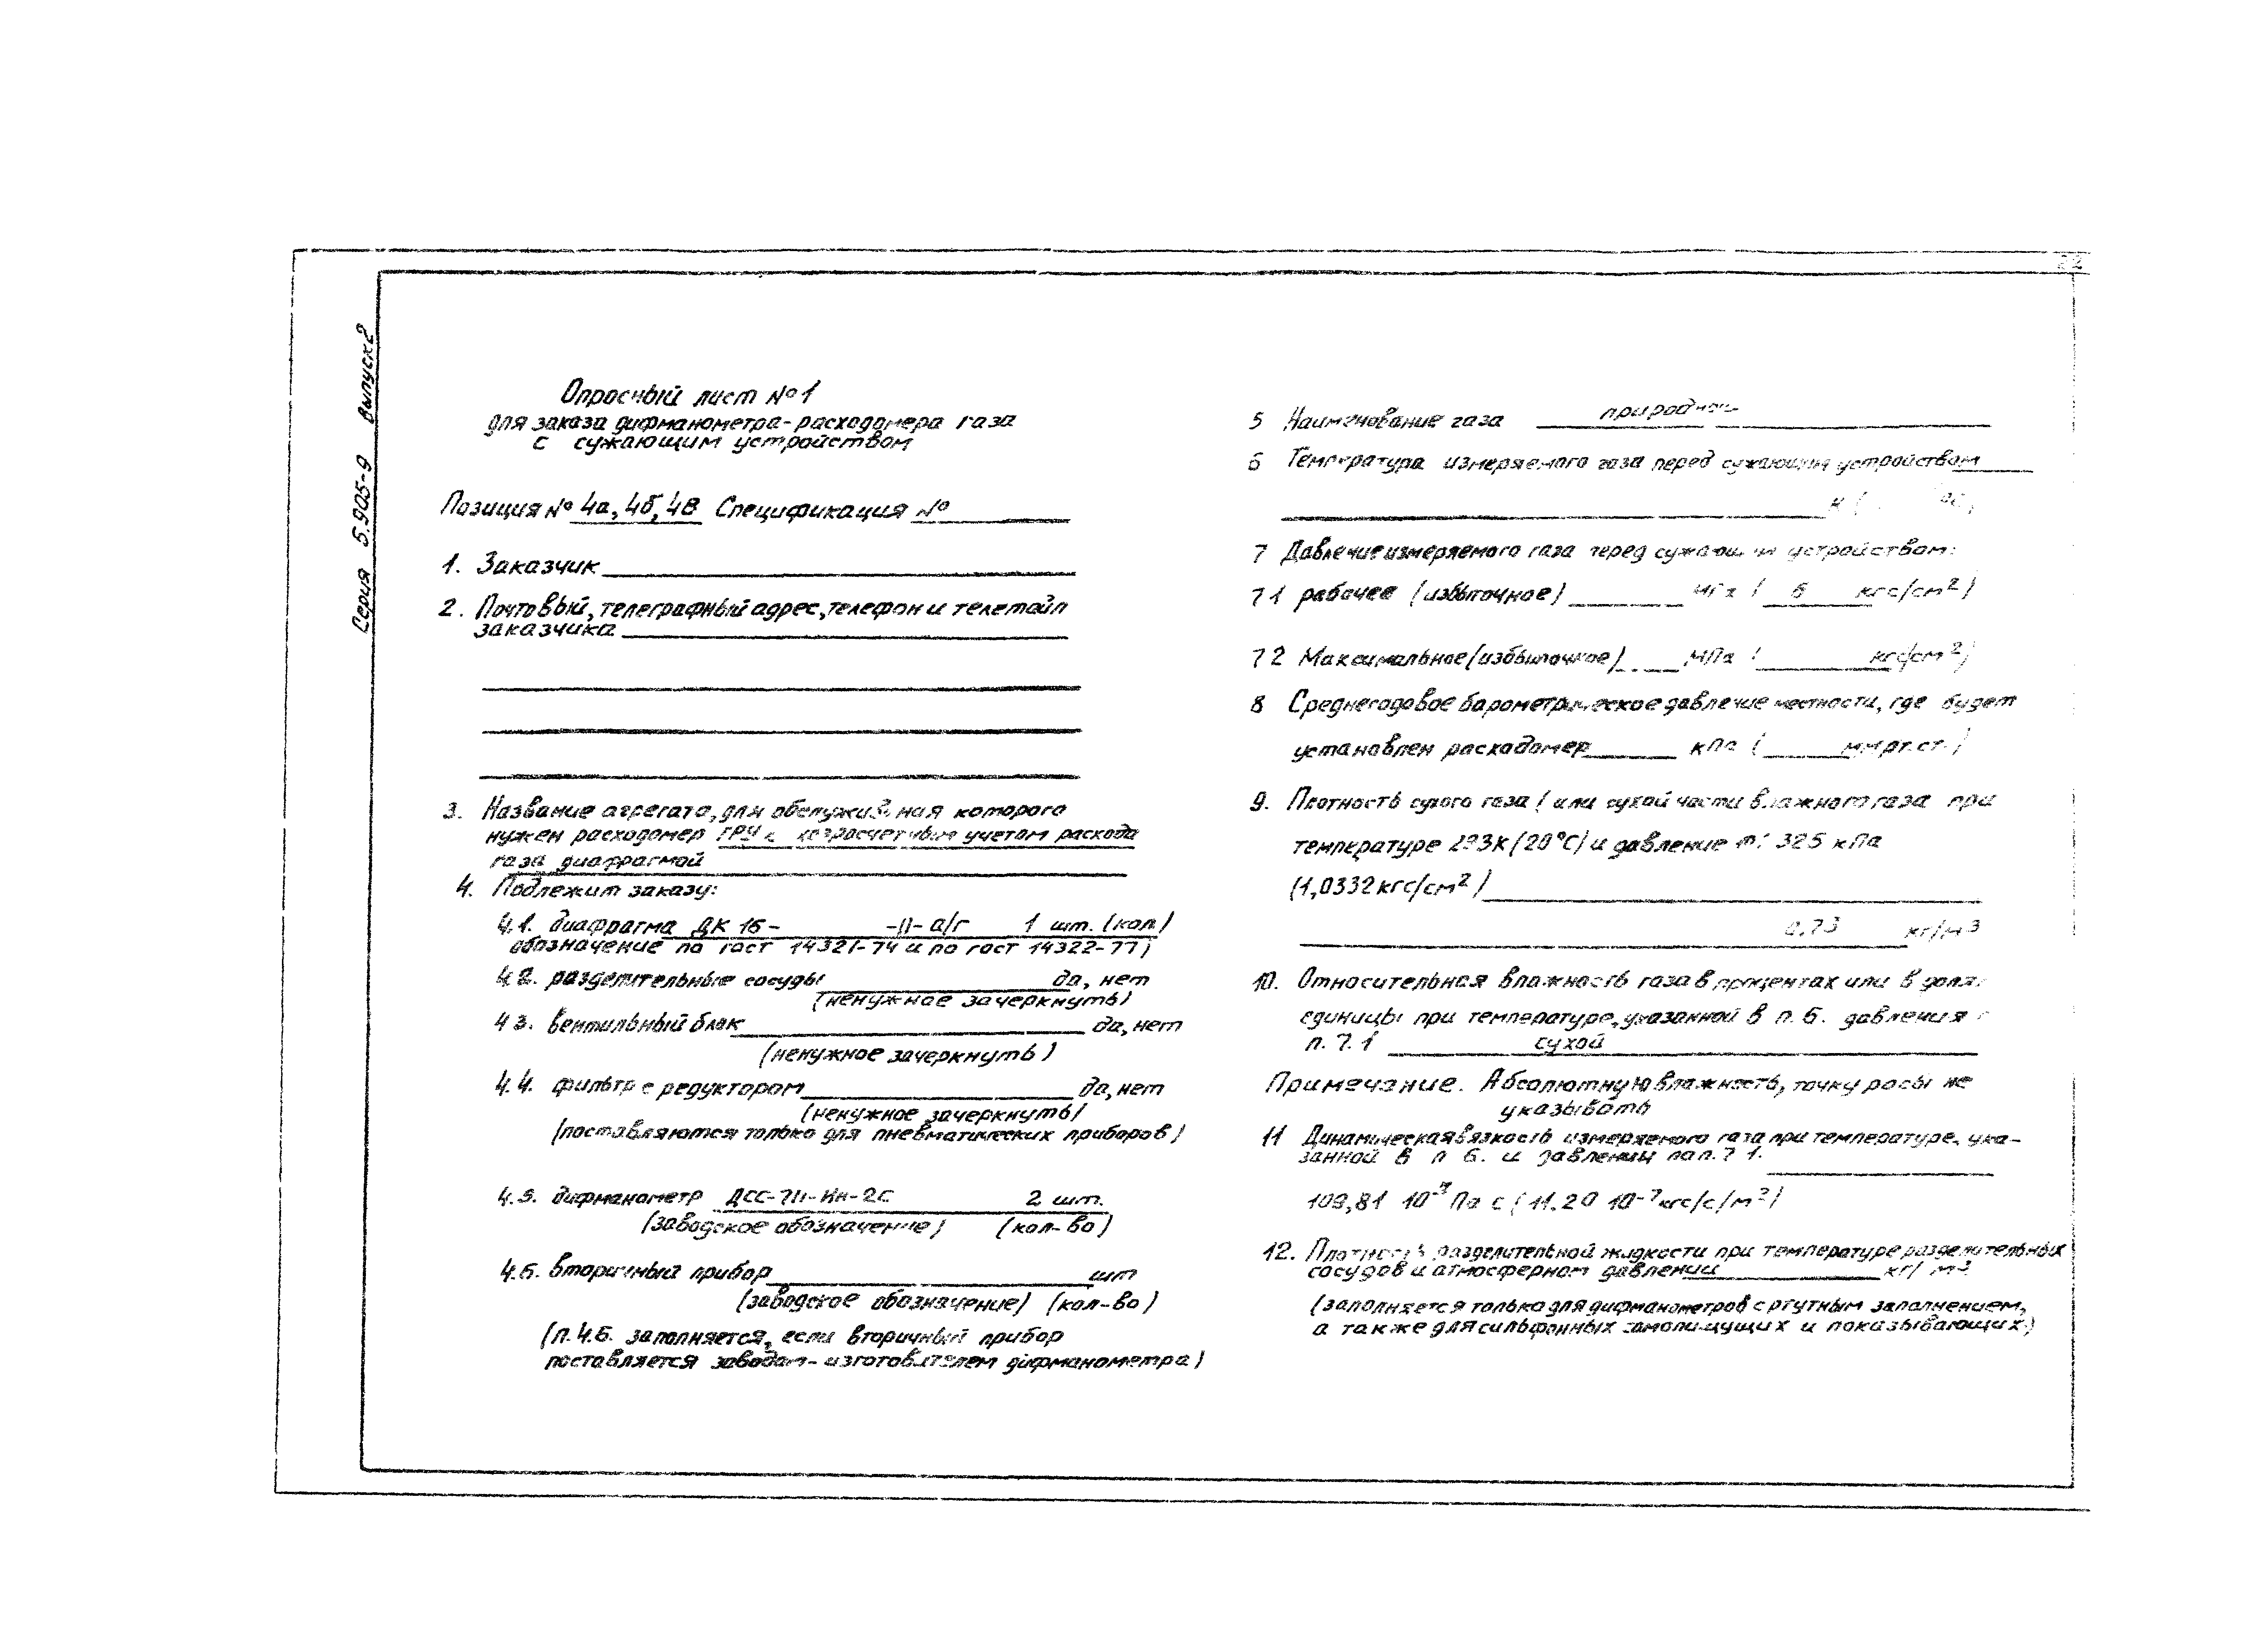 Серия 5.905-9 Выпуск 2
22
Опросный лист №1
для заказа дифманометра-расходомера газа
с сужающим устройством
Позиция № 4а, 4б, 4в Спецификация №
1. Заказчик
2. Почтовый, телеграфный адрес, телефон и телетайп
заказчика
3. Название агрегата, для обслуживания которого
нужен расходомер ГРУ с хозрасчетным учетом расхода
газа диафрагмой
4. Подлежит заказу:
4.1. диафрагма ДК 16- -II- а/г 1 шт. (кол.)
обозначение по гост 14321-74 и по гост 14322-77)
4.2. разделительные сосуды да, нет
(ненужное зачеркнуть)
4.3. вентильный блок да, нет
(ненужное зачеркнуть)
4.4. фильтр с редуктором да, нет
(ненужное зачеркнуть)
(поставляются только для пневматических приборов)
4.5. дифманометр ДСС-711-Ин-2С 2 шт.
(заводское обозначение) (кол-во)
4.6. вторичный прибор шт
(заводское обозначение) (кол-во)
(п.4.6. заполняется, если вторичный прибор
поставляется заводом-изготовителем дифманометра)
5 Наименование газа природный
6 Температура измеряемого газа перед сужающим устройством
К ( °С)
7 Давление измеряемого газа перед сужающим устройством:
7.1 рабочее (избыточное) МПа ( 6 кгс/см²)
7.2 Максимальное (избыточное) МПа ( кгс/см²)
8 Среднегодовое барометрическое давление местности, где будет
установлен расходомер кПа ( мм рт. ст.)
9. Плотность сухого газа (или сухой части влажного газа при
температуре 293К (20°С) и давление 101 325 кПа
(1,0332 кгс/см²)
0,73 кг/м³
10. Относительная влажность газа в процентах или в долях
единицы при температуре, указанной в п. 6. давления
п. 7.1 сухой
Примечание. Абсолютную влажность, точку росы не
указывать
11 Динамическая вязкость измеряемого газа при температуре, ука-
занной в п 6. и давлении по п. 7 1.
109,81 10⁻⁷ Па с (11.20 10⁻⁷ кгс/с/м²)
12. Плотность разделительной жидкости при температуре разделительных
сосудов и атмосферном давлении кг/ м³
(заполняется только для дифманометров с ртутным заполнением,
а также для сильфонных самопишущих и показывающих)